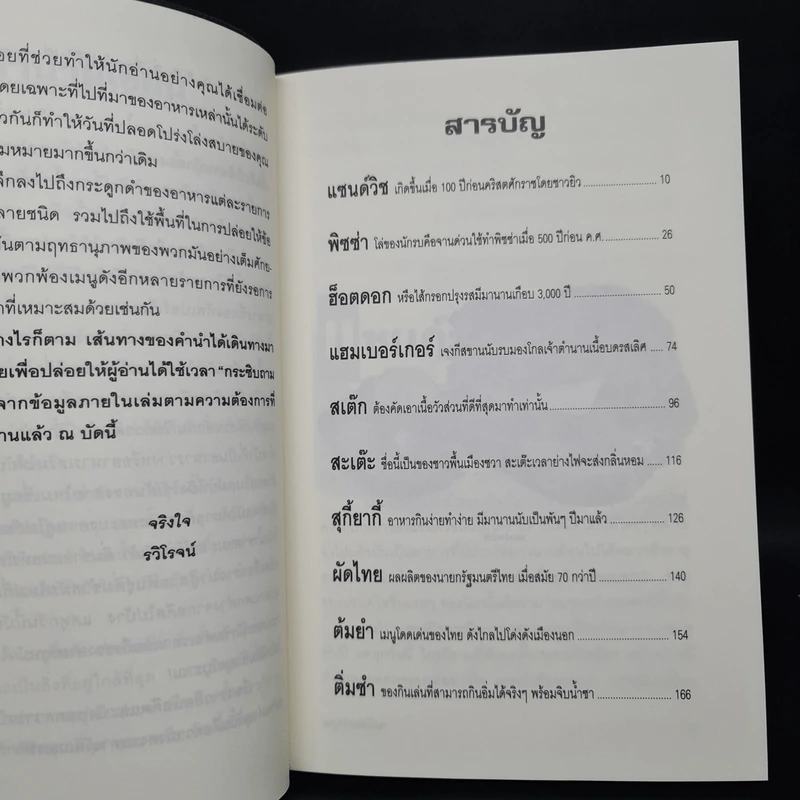 อยที่ช่วยทำให้นักอ่านอย่างคุณได้เชื่อมต่อ
ดยเฉพาะที่ไปที่มาของอาหารเหล่านั้นได้ระดับ
วกันก็ทำให้วันที่ปลอดโปร่งโล่งสบายของคุณ
มหมายมากขึ้นกว่าเดิม
จึกลงไปถึงกระดูกดำของอาหารแต่ละรายการ
ลายชนิด รวมไปถึงใช้พื้นที่ในการปล่อยให้ข้อ
ันตามฤทธานุภาพของพวกมันอย่างเต็มศักย-
พวกพ้องเมนูดังอีกหลายรายการที่ยังรอการ
กที่เหมาะสมด้วยเช่นกัน
างไรก็ตาม เส้นทางของคำนำได้เดินทางมา
ยเพื่อปล่อยให้ผู้อ่านได้ใช้เวลา "กระซิบถาม
จากข้อมูลภายในเล่มตามความต้องการที่
านแล้ว ณ บัดนี้
จริงใจ
รวิโรจน์
สารบัญ
แซนด์วิช เกิดขึ้นเมื่อ 100 ปีก่อนคริสตศักราชโดยชาวยิว ........................ 10
พิซซ่า โล่ของนักรบคือจานด่วนใช้ทำพิซซ่าเมื่อ 500 ปีก่อน ค.ศ. .................. 26
ฮ็อตดอก หรือไส้กรอกปรุงรสมีมานานเกือบ 3,000 ปี ........................... 50
แฮมเบอร์เกอร์ เจงกีสขานนักรบมองโกลเจ้าตำนานเนื้อบดรสเลิศ ..... 74
สเต๊ก ต้องคัดเอาเนื้อวัวส่วนที่ดีที่สุดมาทำเท่านั้น .................................. 96
สะเต๊ะ ชื่อนี้เป็นของชาวพื้นเมืองชวา สะเต๊ะเวลาย่างไฟจะส่งกลิ่นหอม ...... 116
สุกี้ยากี้ อาหารกินง่ายทำง่าย มีมานานนับเป็นพันๆ ปีมาแล้ว .................. 126
ผัดไทย ผลผลิตของนายกรัฐมนตรีไทย เมื่อสมัย 70 กว่าปี ...................... 140
ต้มยำ เมนูโดดเด่นของไทย ดังไกลไปโด่งดังเมืองนอก ............................ 154
ติ่มซำ ของกินเล่นที่สามารถกินอิ่มได้จริงๆ พร้อมจิบน้ำชา ........................ 166